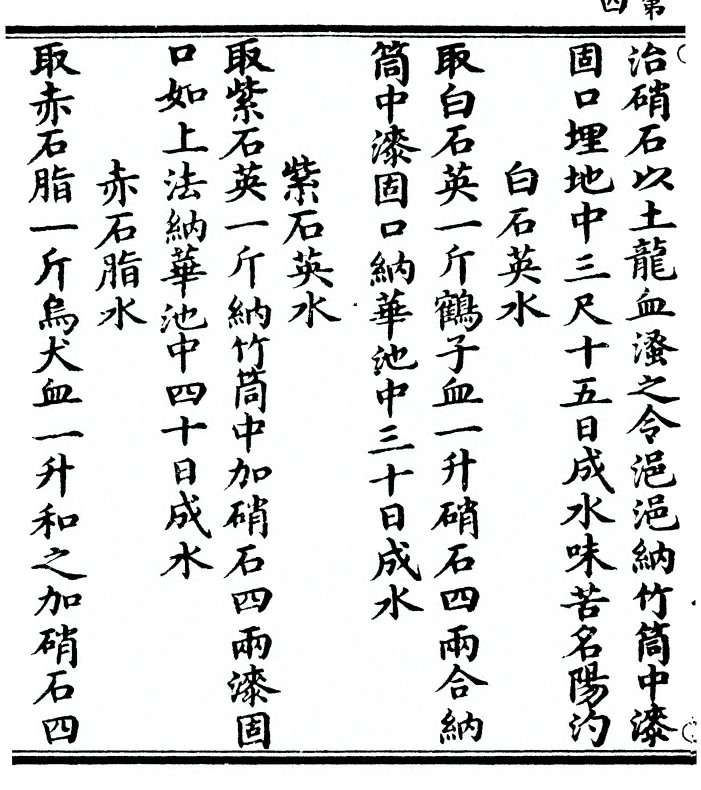 第四
治硝石以土龍血溲之令浥浥納竹筒中漆
固口埋地中三尺十五日成水味苦名陽汋
白石英水
取白石英一斤鶴子血一升硝石四兩合納
筒中漆固口納華池中三十日成水
紫石英水
取紫石英一斤納竹筒中加硝石四兩漆固
口如上法納華池中四十日成水
赤石脂水
取赤石脂一斤烏犬血一升和之加硝石四